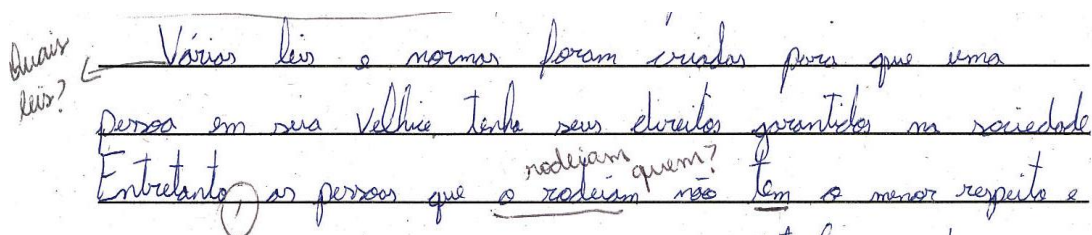 Quais
leis?
Várias leis e normas foram criadas para que uma
pessoa em sua velhice tenha seus direitos garantidos na sociedade
rodeiam quem?
Entretanto, as pessoas que o rodeiam não tem o menor respeito e